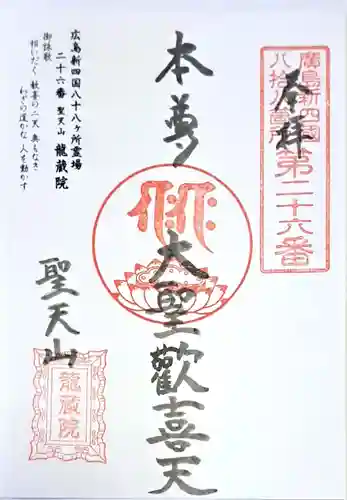 廣島新四國
八拾八箇所
第二十六番
奉拝
本尊
大聖歓喜天
聖天山
龍蔵院
広島新四国八十八ヶ所霊場
二十六番 聖天山 龍蔵院
御詠歌
相いだく 歓喜の二天 奥もなき
わざの遥かな 人を動かす